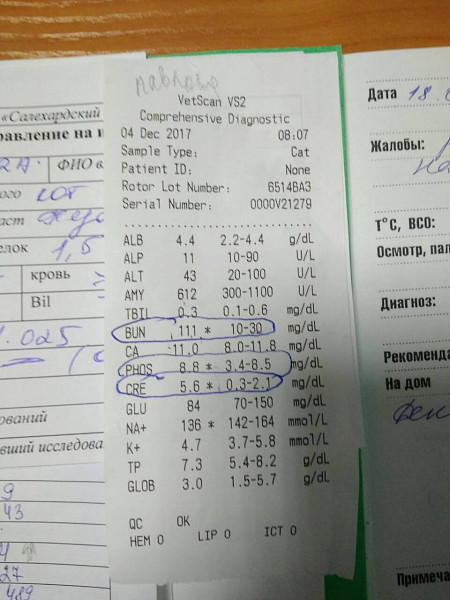 павлова
VetScan VS2
Comprehensive Diagnostic
04 Dec 2017 08:07
Sample Type: Cat
Patient ID: None
Rotor Lot Number: 6514BA3
Serial Number: 0000V21279
ALB 4.4 2.2-4.4 g/dL
ALP 11 10-90 U/L
ALT 43 20-100 U/L
AMY 612 300-1100 U/L
TBIL 0.3 0.1-0.6 mg/dL
BUN 111 * 10-30 mg/dL
CA 11.0 8.0-11.8 mg/dL
PHOS 8.8 * 3.4-8.5 mg/dL
CRE 5.6 * 0.3-2.1 mg/dL
GLU 84 70-150 mg/dL
NA+ 136 * 142-164 mmol/L
K+ 4.7 3.7-5.8 mmol/L
TP 7.3 5.4-8.2 g/dL
GLOB 3.0 1.5-5.7 g/dL
QC OK
HEM 0 LIP 0 ICT 0
«Салехардский
ФИО
1,5
кровь
Bil
.025
9
43
4
27
489
Дата 18.
Жалобы:
T°C, ВСО:
Осмотр, пал
Диагноз:
Рекоменда
На дом
Примеча